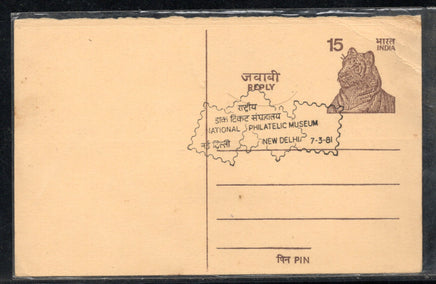 15 भारत
INDIA
जवाबी
REPLY
राष्ट्रीय
डाक टिकट संग्रहालय
NATIONAL PHILATELIC MUSEUM
नई दिल्ली NEW DELHI 7-3-81
पिन PIN